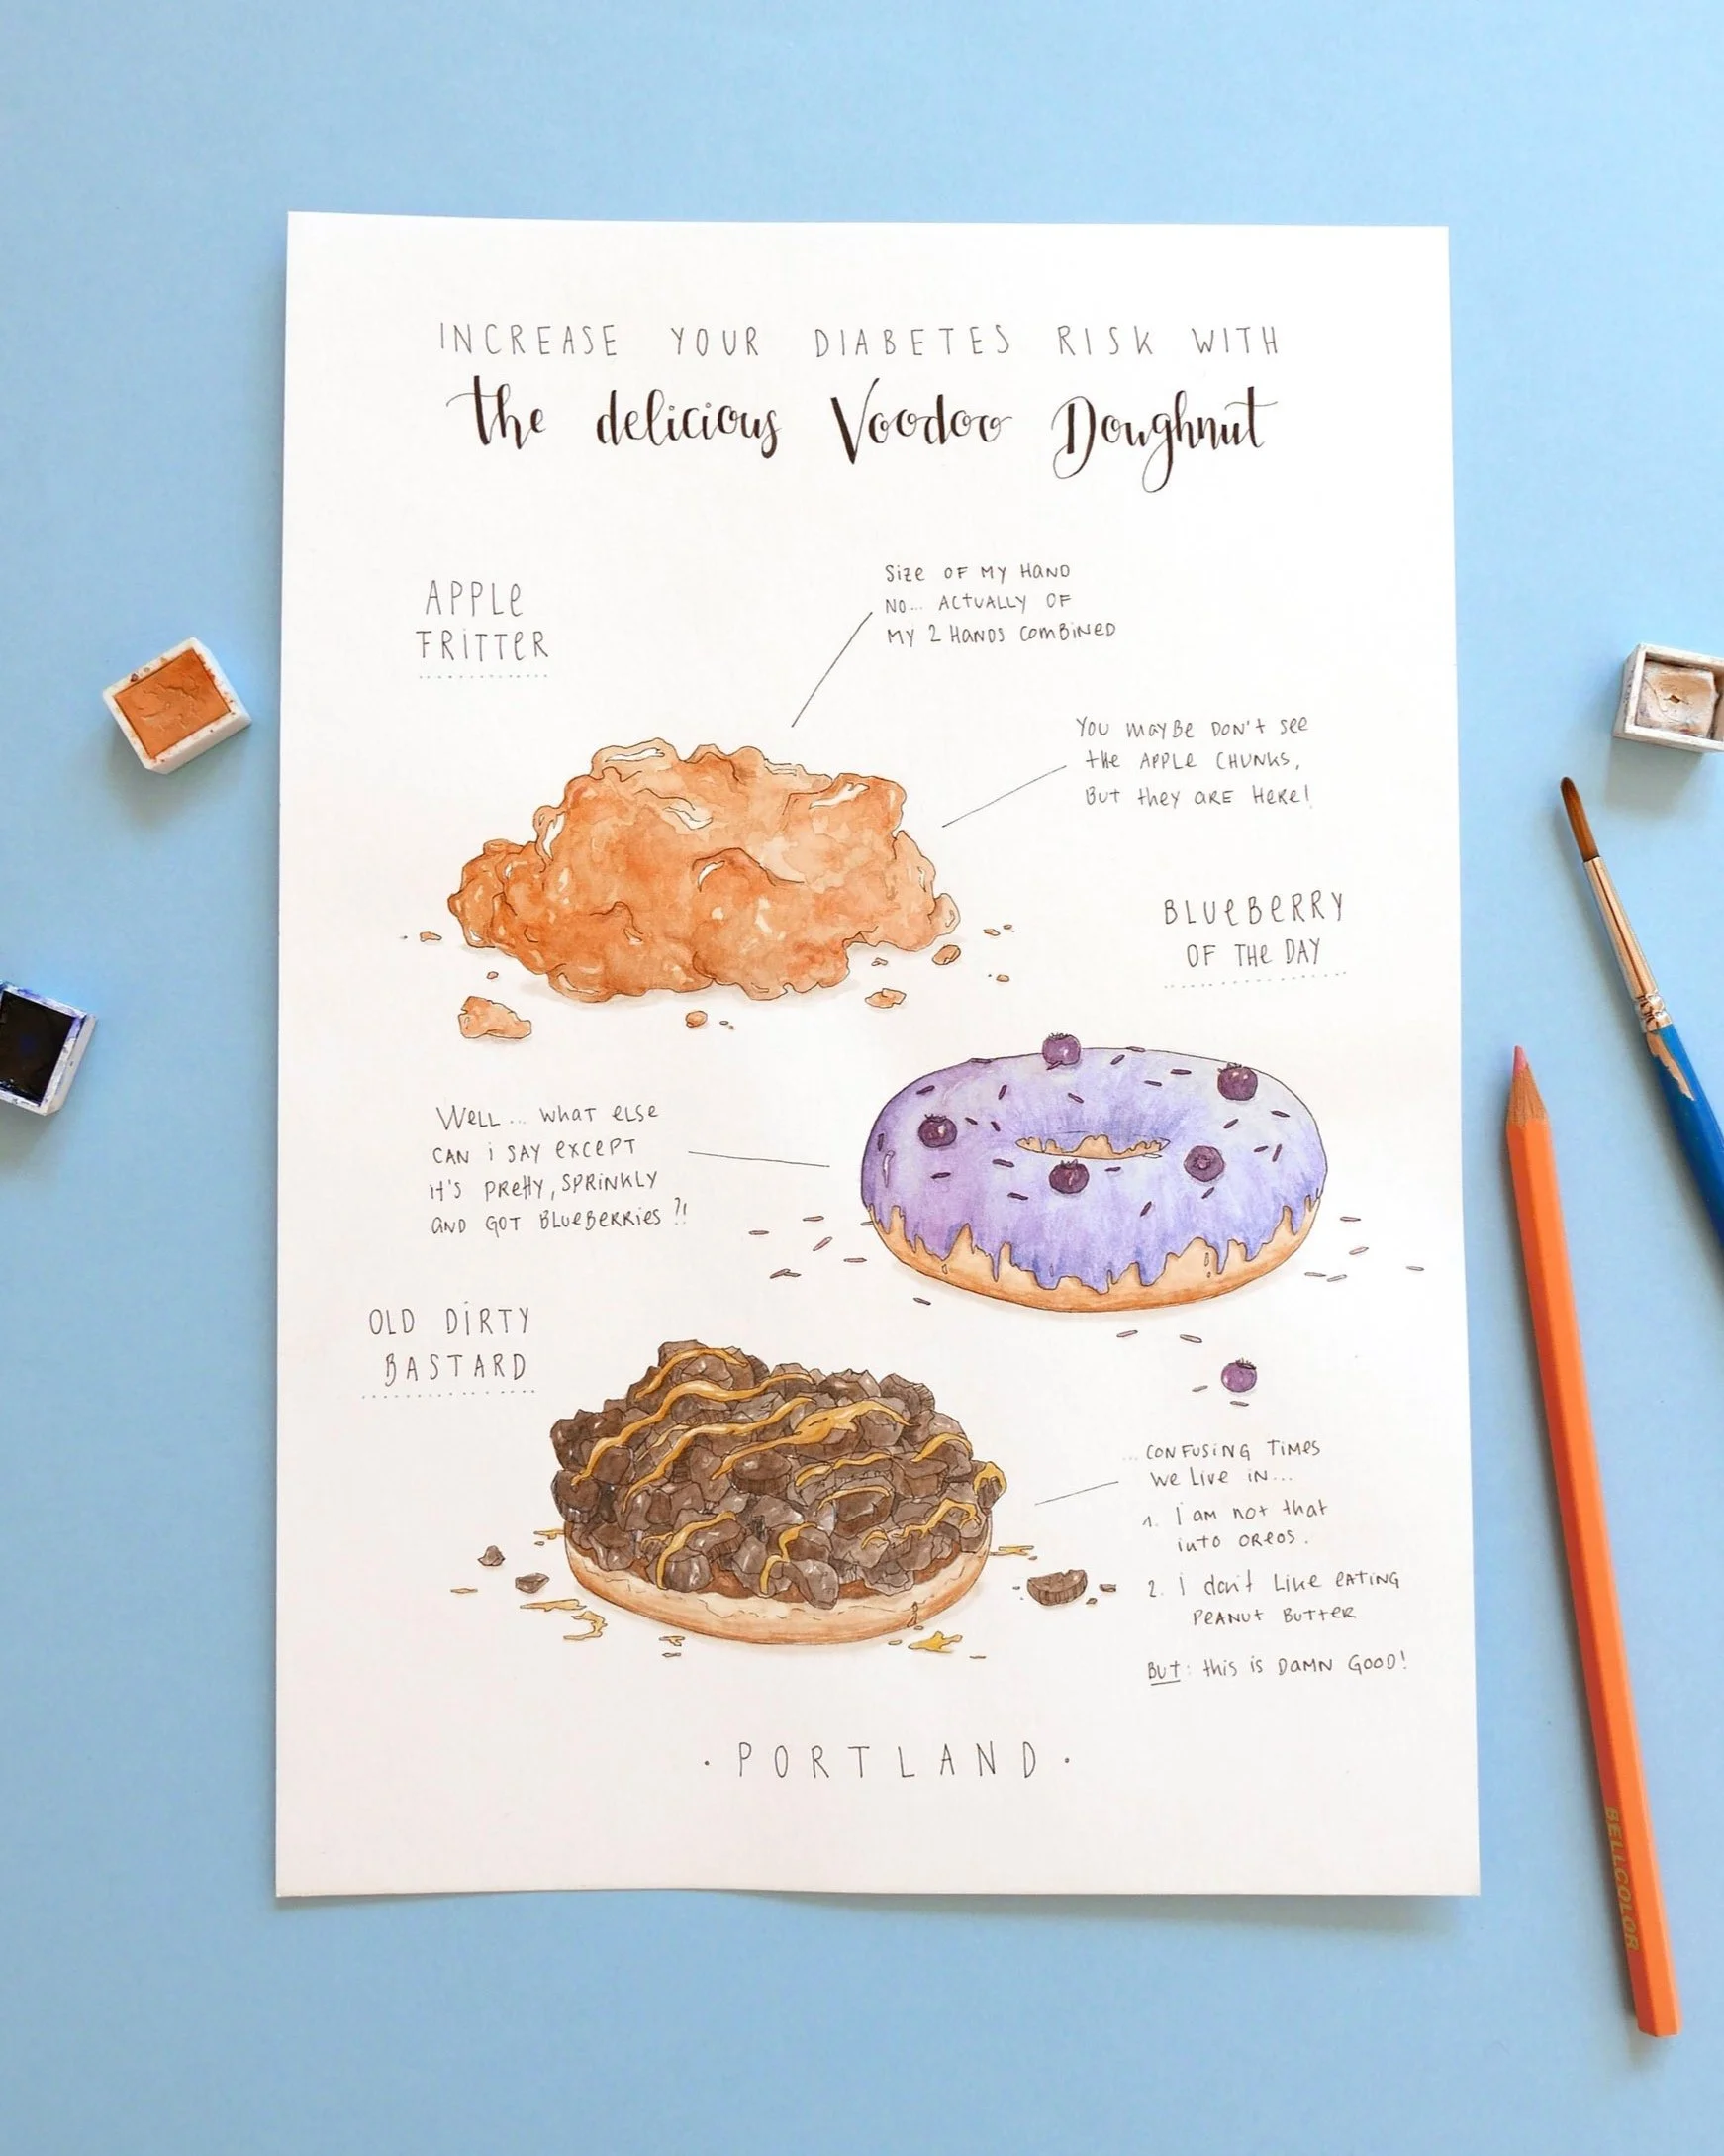 INCREASE YOUR DIABETES RISK WITH
the delicious Voodoo Doughnut
APPLE
FRITTER
Size OF MY HAND
NO... ACTUALLY OF
MY 2 HANDS COMBINED
YOU MAYBE DON'T SEE
the APPLE CHUNKS,
BUT they ARE HERE!
BLUEBERRY
OF THE DAY
WELL... WHAT ELSE
CAN i SAY EXCEPT
it's PREttY, SPRINKLY
AND GOT BLUEBERRIES ?!
OLD DIRTY
BASTARD
... CONFUSING TIMES
WE LIVE IN...
1. I AM not that
into OREOS.
2. I don't LIKE EATING
PEANUT BUTTER
BUT: this is DAMN GOOD!
· PORTLAND ·
BELLCOLOR